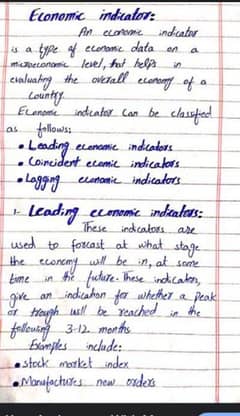 Economic indicators:
An economic indicator
is a type of economic data on a
microeconomic level, that helps in
evaluating the overall economy of a
Country.
Economic indicator can be classified
as follows:
• Leading economic indicators
• Coincident ecomic indicators
• Lagging economic indicators
1- Leading economic indicators:
These indicators are
used to forcast at what stage
the economy will be in, at some
time in the future. These indicators,
give an indication for whether a peak
or trough will be reached in the
following 3-12 months
Examples include:
• Stock market index
• Manufactures new orders